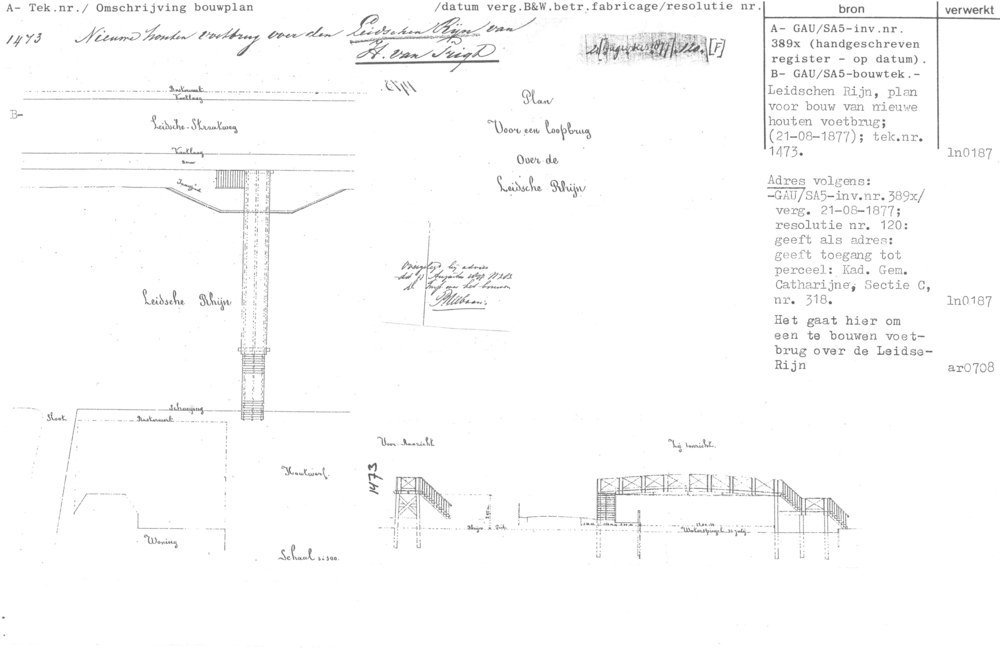 A- Tek.nr./ Omschrijving bouwplan
/datum verg.B&W.betr.fabricage/resolutie nr.
1473 Nieuwe houten voetbrug over den Leidschen Rijn van
H. van Trigh
21 Augustus 1877 n. 120. [F]
bron
verwerkt
A- GAU/SA5-inv.nr.
389x (handgeschreven
register - op datum).
B- GAU/SA5-bouwtek.-
Leidschen Rijn, plan
voor bouw van nieuwe
houten voetbrug;
(21-08-1877); tek.nr.
1473.
ln0187
Adres volgens:
-GAU/SA5-inv.nr.389x/
verg. 21-08-1877;
resolutie nr. 120:
geeft als adres:
geeft toegang tot
perceel: Kad. Gem.
Catharijne, Sectie C,
nr. 318.
ln0187
Het gaat hier om
een te bouwen voet-
brug over de Leidse-
Rijn
ar0708
B-
1473
Plan
Voor een loopbrug
Over de
Leidsche Rhijn
Rasterwerk
Voetlaag
Leidsche Straatweg
Voetlaag
Leidsche Rhijn
Overgelegd bij adres
Schoeijing
Sloot
Rasterwerk
Houtwerf
Woning
Schaal 1 à 200.
Voor Aanzicht
Zij aanzicht
1473
Waterspiegel